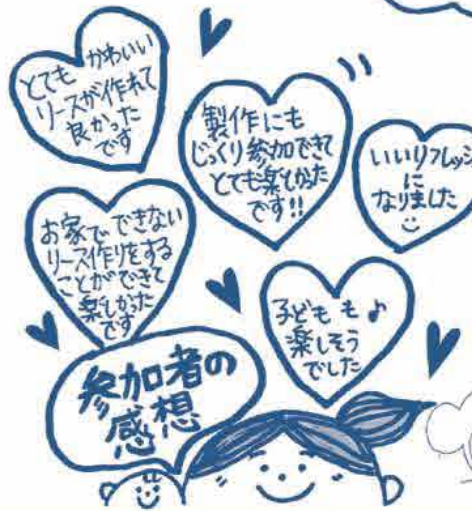 とても かわいい
リースが作れて
良かった
です
製作にも
じっくり参加できて
とても楽しかった
です!!
いいリフレッシ
に
なりました
お家でできない
リース作りをする
ことができて
楽しかった
です
子どもも♪
楽しそう
でした
参加者の
感想